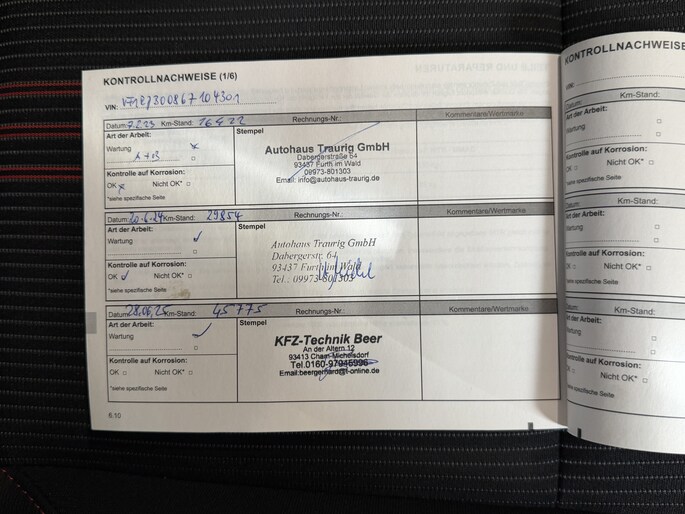 KONTROLLNACHWEISE (1/6)
VIN:
Datum: 7.2.23 Km-Stand: Rechnungs-Nr.: Kommentare/Wertmarke
Art der Arbeit: Stempel
Wartung x
Autohaus Traurig GmbH
Dabergerstraße 64
93437 Furth im Wald
08973-801303
Email: info@autohaus-traurig.de
Kontrolle auf Korrosion:
OK x Nicht OK* □
*siehe spezifische Seite
Datum: 20.6.24 Km-Stand: 29854 Rechnungs-Nr.: Kommentare/Wertmarke
Art der Arbeit: Stempel
Wartung ✓
□
Autohaus Traurig GmbH
Dabergerstr. 64,
93437 Furth im Wald
Tel.: 09973-801303
Kontrolle auf Korrosion:
OK ✓ Nicht OK* □
*siehe spezifische Seite
Datum: 28.06.25 Km-Stand: 45775 Rechnungs-Nr.: Kommentare/Wertmarke
Art der Arbeit: Stempel
Wartung ✓
□
KFZ-Technik Beer
An der Altern 12
93413 Cham-Michelsdorf
Tel.0160-97946996
Email:beergerhard@t-online.de
Kontrolle auf Korrosion:
OK □ Nicht OK* □
*siehe spezifische Seite
6.10
KONTROLLNACHWEISE
VIN:
Datum: Km-Stand:
Art der Arbeit:
Wartung □
□
Kontrolle auf Korrosion:
OK □ Nicht OK* □
*siehe spezifische Seite
Datum: Km-Stand:
Art der Arbeit:
Wartung □
□
Kontrolle auf Korrosion:
OK □ Nicht OK* □
*siehe spezifische Seite
Datum: Km-Stand:
Art der Arbeit:
Wartung □
□
Kontrolle auf Korrosion:
OK □ Nicht OK* □
*siehe spezifische Seite